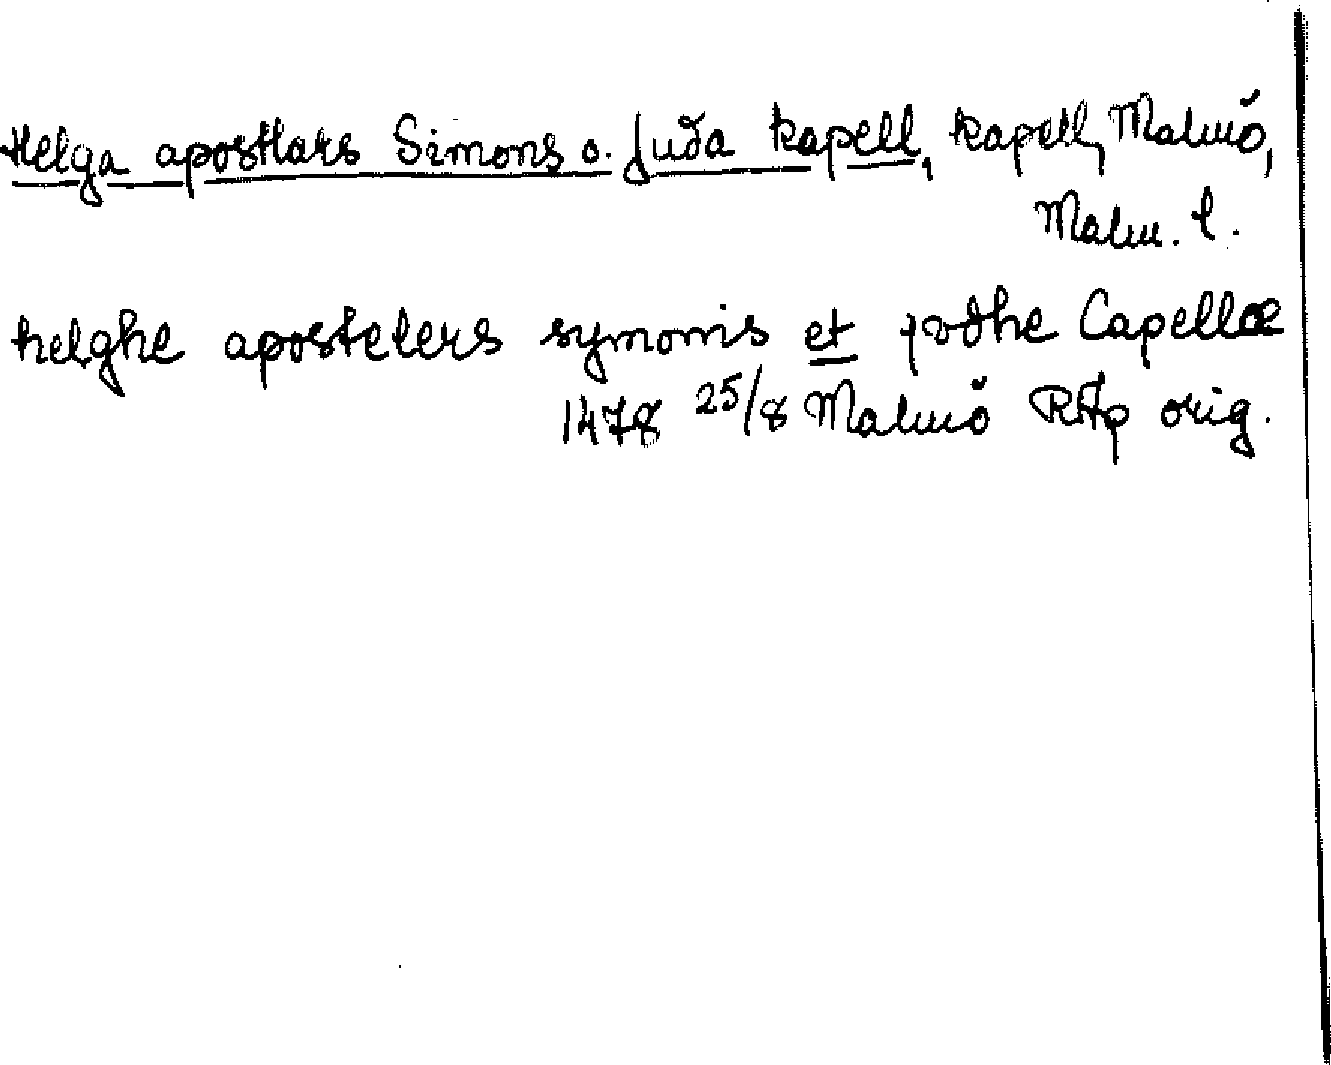 Helga apostlars Simons o. Juda kapell, kapell, Malmö,
Malm. l.
helghe apostelers symonis et jvdhe Capellæ
1478 25/8 Malmö RAp orig.